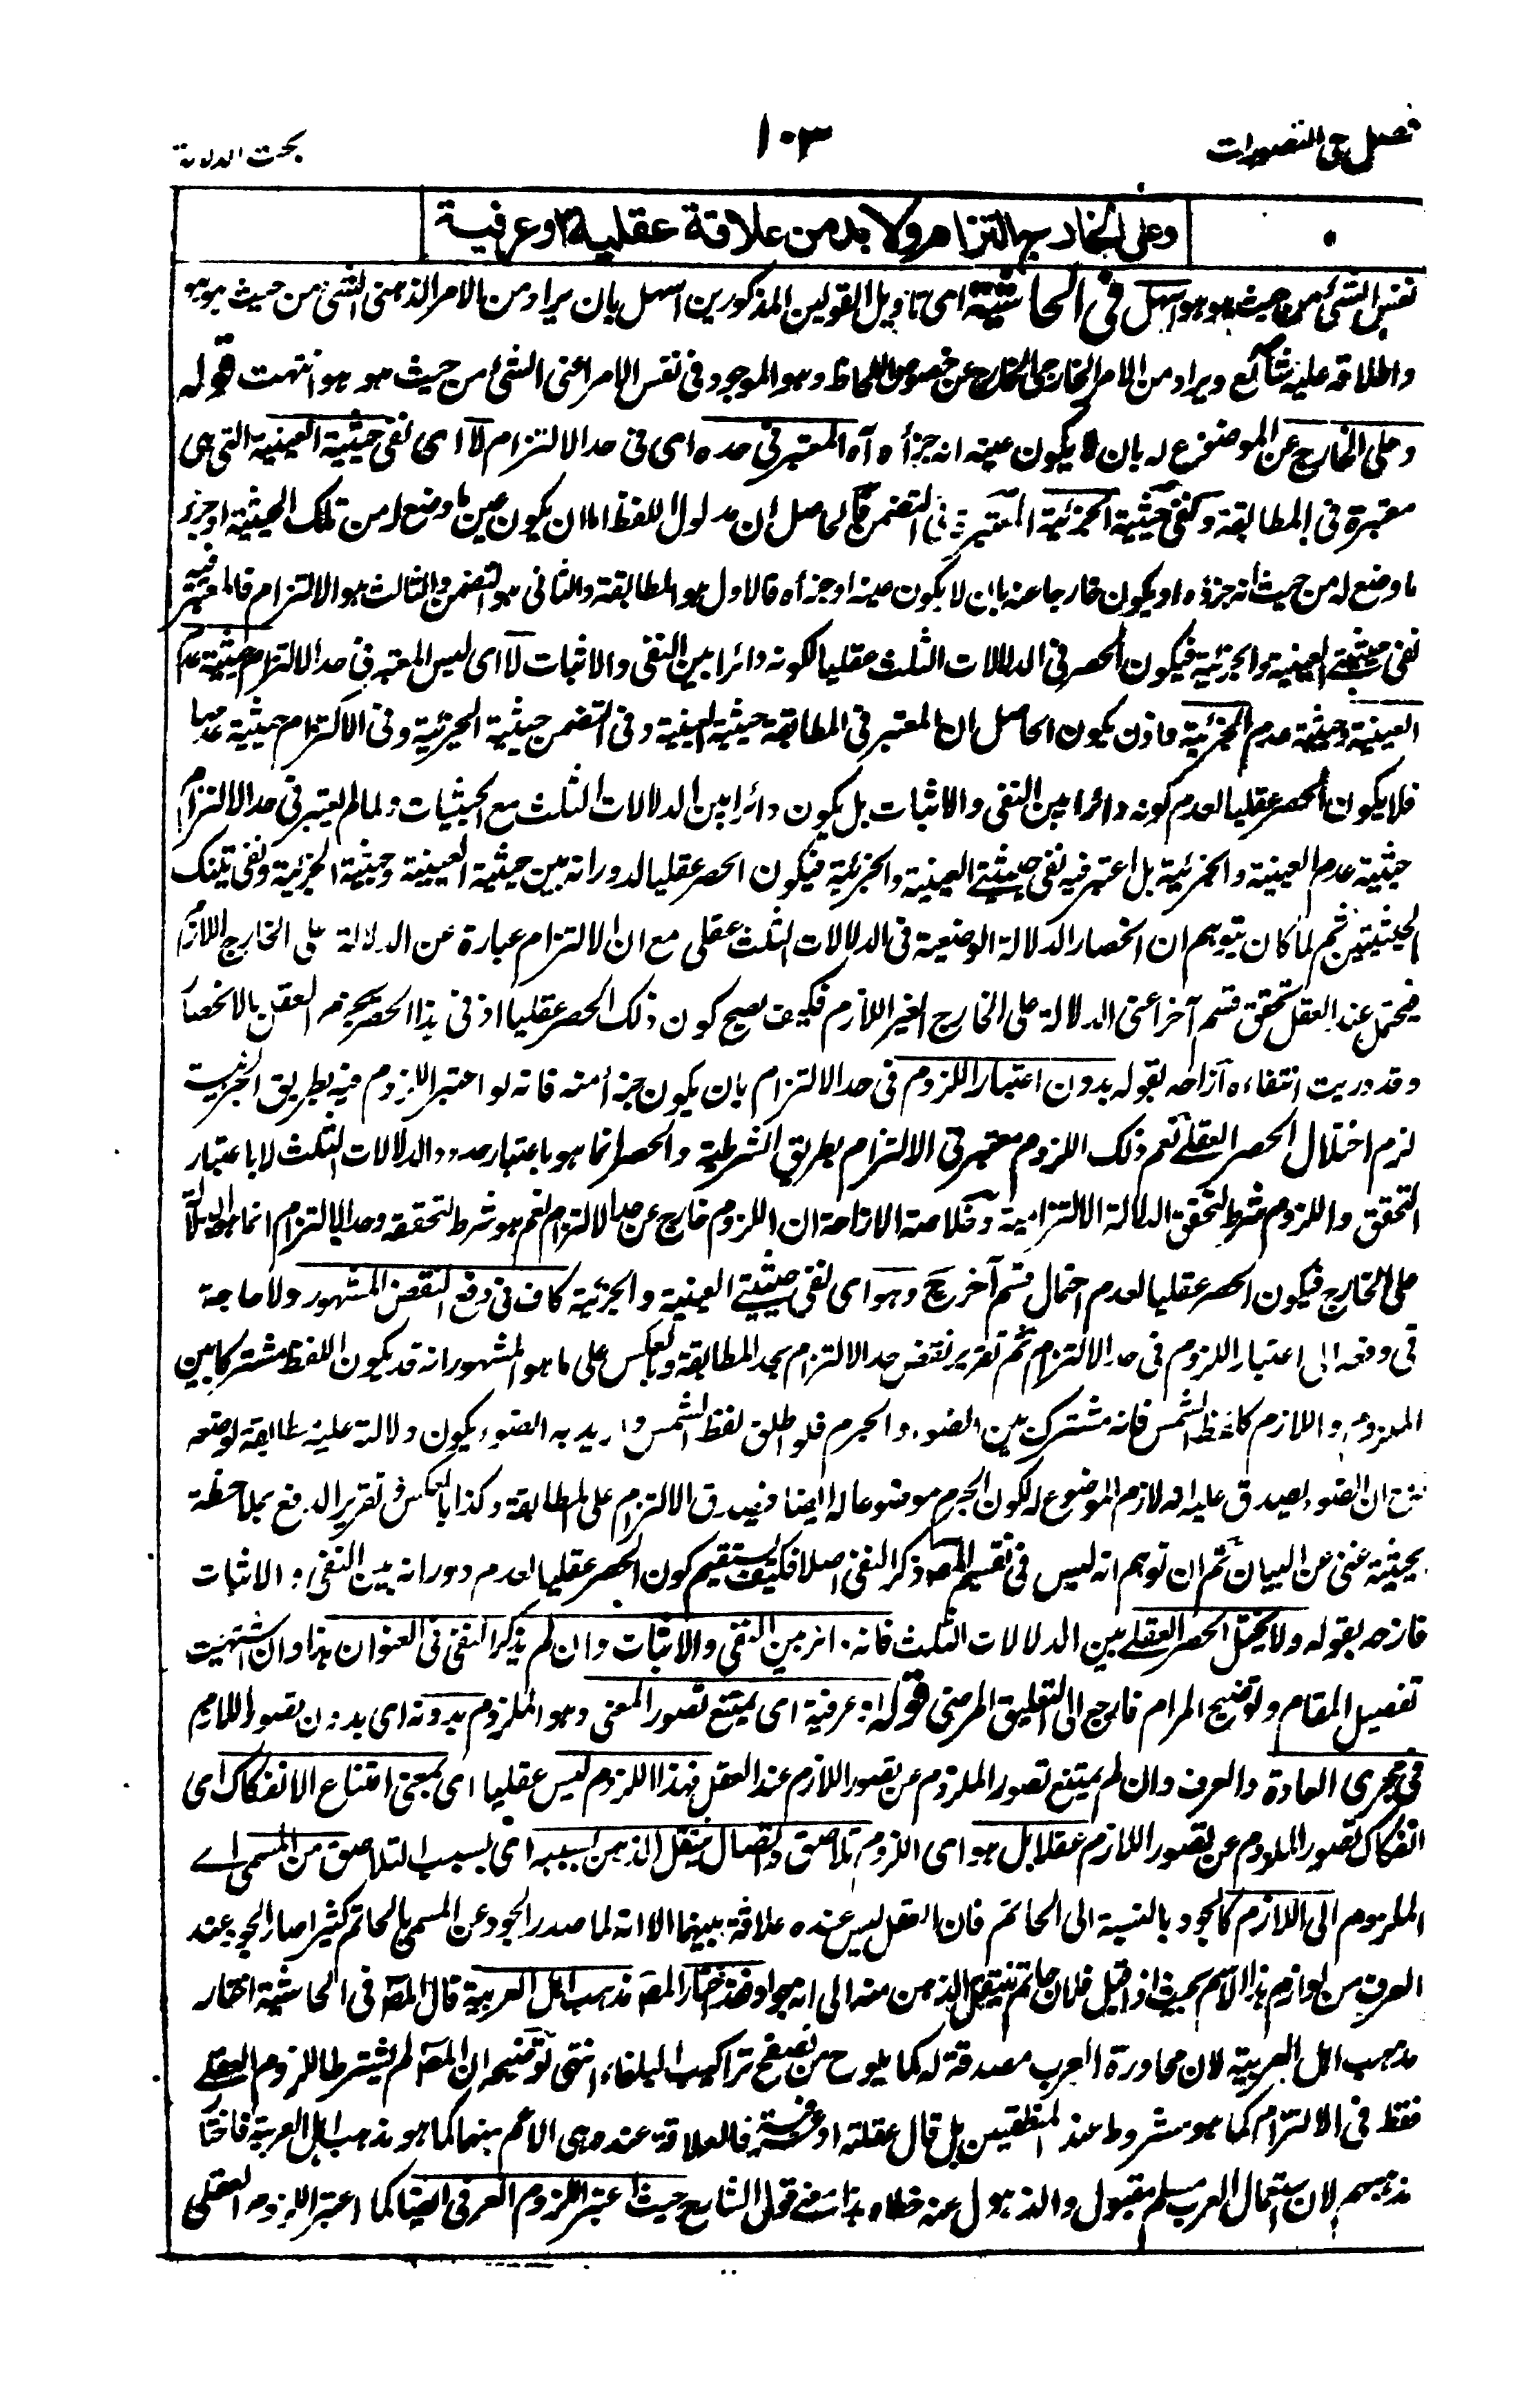 فصل في التصورات
١٠٣
بحث الدلالة
وعلى الخارج التزام ولا بد من علاقة عقلية او عرفية
نفس الشئ من حيث هو هو اسهل فى الحاشية اى تاويل القولين المذكورين اسهل بان يراد من الامر الذهنى الشئ من حيث هو هو
واطلاقه عليه شائع ويراد من الامر الخارجى الخارج عن خصوص اللحاظ وهو الموجود فى نفس الامر اعنى الشئ من حيث هو هو انتهت قوله
وعلى الخارج عن الموضوع له بان لا يكون عينه انه جزأه آه المعتبر فى حده اى فى حد الالتزام لا اى نفى حيثية العينية التى هى
معتبرة فى المطابقة وكنفى حيثية الجزئية المعتبرة فى التضمن فالحاصل ان مدلول اللفظ اما ان يكون عين ما وضع له من تلك الحيثية او جزء
ما وضع له من حيث انه جزؤه او يكون خارجا عنه بان لا يكون عينه او جزأه فالاول هو المطابقة والثانى هو التضمن والثالث هو الالتزام فالمعتبر فيه
نفى حيثيتى العينية والجزئية فيكون الحصر فى الدلالات الثلث عقليا لكونه دائرا بين النفى والاثبات لا اى ليس المعتبر فى حد الالتزام حيثية عدم
العينية وحيثية عدم الجزئية فاذن يكون الحاصل ان المعتبر فى المطابقة حيثية العينية وفى التضمن حيثية الجزئية وفى الالتزام حيثية عدمهما
فلا يكون الحصر عقليا لعدم كونه دائرا بين النفى والاثبات بل يكون دائرا بين الدلالات الثلث مع الحيثيات ولما لم يعتبر فى حد الالتزام
حيثية عدم العينية والجزئية بل اعتبر فيه نفى حيثيتى العينية والجزئية فيكون الحصر عقليا لدورانه بين حيثية العينية وحيثية الجزئية ونفى تينك
الحيثيتين ثم لما كان يتوهم ان انحصار الدلالة الوضعية فى الدلالات الثلث عقلى مع ان الالتزام عبارة عن الدلالة على الخارج اللازم
فيحتمل عند العقل تحقق قسم آخر اعنى الدلالة على الخارج الغير اللازم فكيف يصح كون ذلك الحصر عقليا اذ فى هذا الحصر يجزم العقل بالانحصار
وقد دريت انتفاءه آزاحه بقوله بدون اعتبار اللزوم فى حد الالتزام بان يكون جزأ منه فانه لو اعتبر اللزوم فيه بطريق الجزئيت
لزم اختلال الحصر العقلى نعم ذلك اللزوم معتبر فى الالتزام بطريق الشرطية والحصر انما هو باعتبار حدود الدلالات الثلث لا باعتبار
التحقق واللزوم شرط لتحقق الدلالة الالتزامية وخلاصة الازاحة ان اللزوم خارج عن حد الالتزام نعم هو شرط لتحققه وحد الالتزام انما هو الدلالة
على الخارج فيكون الحصر عقليا لعدم احتمال قسم آخر ح وهو اى نفى حيثيتى العينية والجزئية كاف فى دفع النقض المشهور ولا حاجة
فى دفعه الى اعتبار اللزوم فى حد الالتزام ثم تقرير نقضه حد الالتزام بحد المطابقة وبالعكس على ما هو المشهور انه قد يكون اللفظ مشتركا بين
الملزوم واللازم كلفظ الشمس فانه مشترك بين الضوء والجرم فلو اطلق لفظ الشمس واريد به الضوء يكون دلالته عليه مطابقة لوضعه
مع ان الضوء يصدق عليه انه لازم الموضوع له لكون الجرم موضوعا له ايضا فيصدق الالتزام على المطابقة وكذا بالعكس وتقرير الدفع بملاحظة
الحيثية غنى عن البيان ثم ان توهم انه ليس فى تقسيم المص ذكر النفى اصلا فكيف يستقيم كون الحصر عقليا لعدم دورانه بين النفى والاثبات
فازاحه بقوله ولا يختل الحصر العقلى بين الدلالات الثلث فانه دائر بين النفى والاثبات وان لم يذكر النفى فى العنوان هذا وان اشتهيت
تفصيل المقام وتوضيح المرام فارجع الى التعليق المرضى قوله او عرفية اى يمتنع تصور المعنى وهو الملزوم بدونه اى بدون تصور اللازم
فى مجرى العادة والعرف وان لم يمتنع تصور الملزوم عن تصور اللازم عند العقل فهذا اللزوم ليس عقليا اى بمعنى امتناع الانفكاك اى
انفكاك تصور الملزوم عن تصور اللازم عقلا بل هو اى اللزوم تلاصق واتصال ينتقل الذهن بسببه اى بسبب التلاصق من المسمى اے
الملزوم الى اللازم كالجود بالنسبة الى الحاتم فان العقل ليس عنده علاقة بينهما الا انه لما صدر الجود عن المسمى بالحاتم كثيرا صار الجود عند
العرف من لوازم هذا الاسم بحيث اذا قيل فلان حاتم ينتقل الذهن منه الى انه جواد فقد اختار المص مذهب اهل العربية قال المص فى الحاشية اختار
مذهب اهل العربية لان محاورة العرب مصدقة له كما يلوح من تصفح تراكيب البلغاء انتهى توضيحه ان المص لم يشترط اللزوم العقلى
فقط فى الالتزام كما هو مشروط عند المنطقيين بل قال عقلية او عرفية فالعلاقة عنده هى الاعم منهما كما هو مذهب اهل العربية فاختار
مذهبهم لان استعمال العرب مسلم مقبول والذهول عنه خطاء هذا فے قول الشارح حيث اعتبر اللزوم العرفى ايضا كما اعتبر اللزوم العقلى